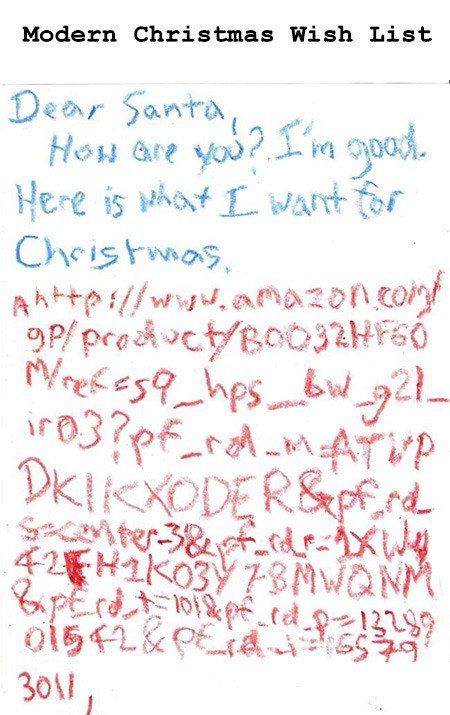 Modern Christmas Wish List
Dear Santa,
How are you? I'm good.
Here is what I want for
Christmas.
A http://www.amazon.com/
gp/product/B0032HF60
M/ref=s9_hps_bw_g21_
ir03?pf_rd_m=ATVP
DKIKX0DER&pf_rd_
s=center-3&pf_rd_r=1XWY
42FH1K03Y78MWQNM
&pf_rd_t=101&pf_rd_p=13289
01542&pf_rd_i=16579
3011,